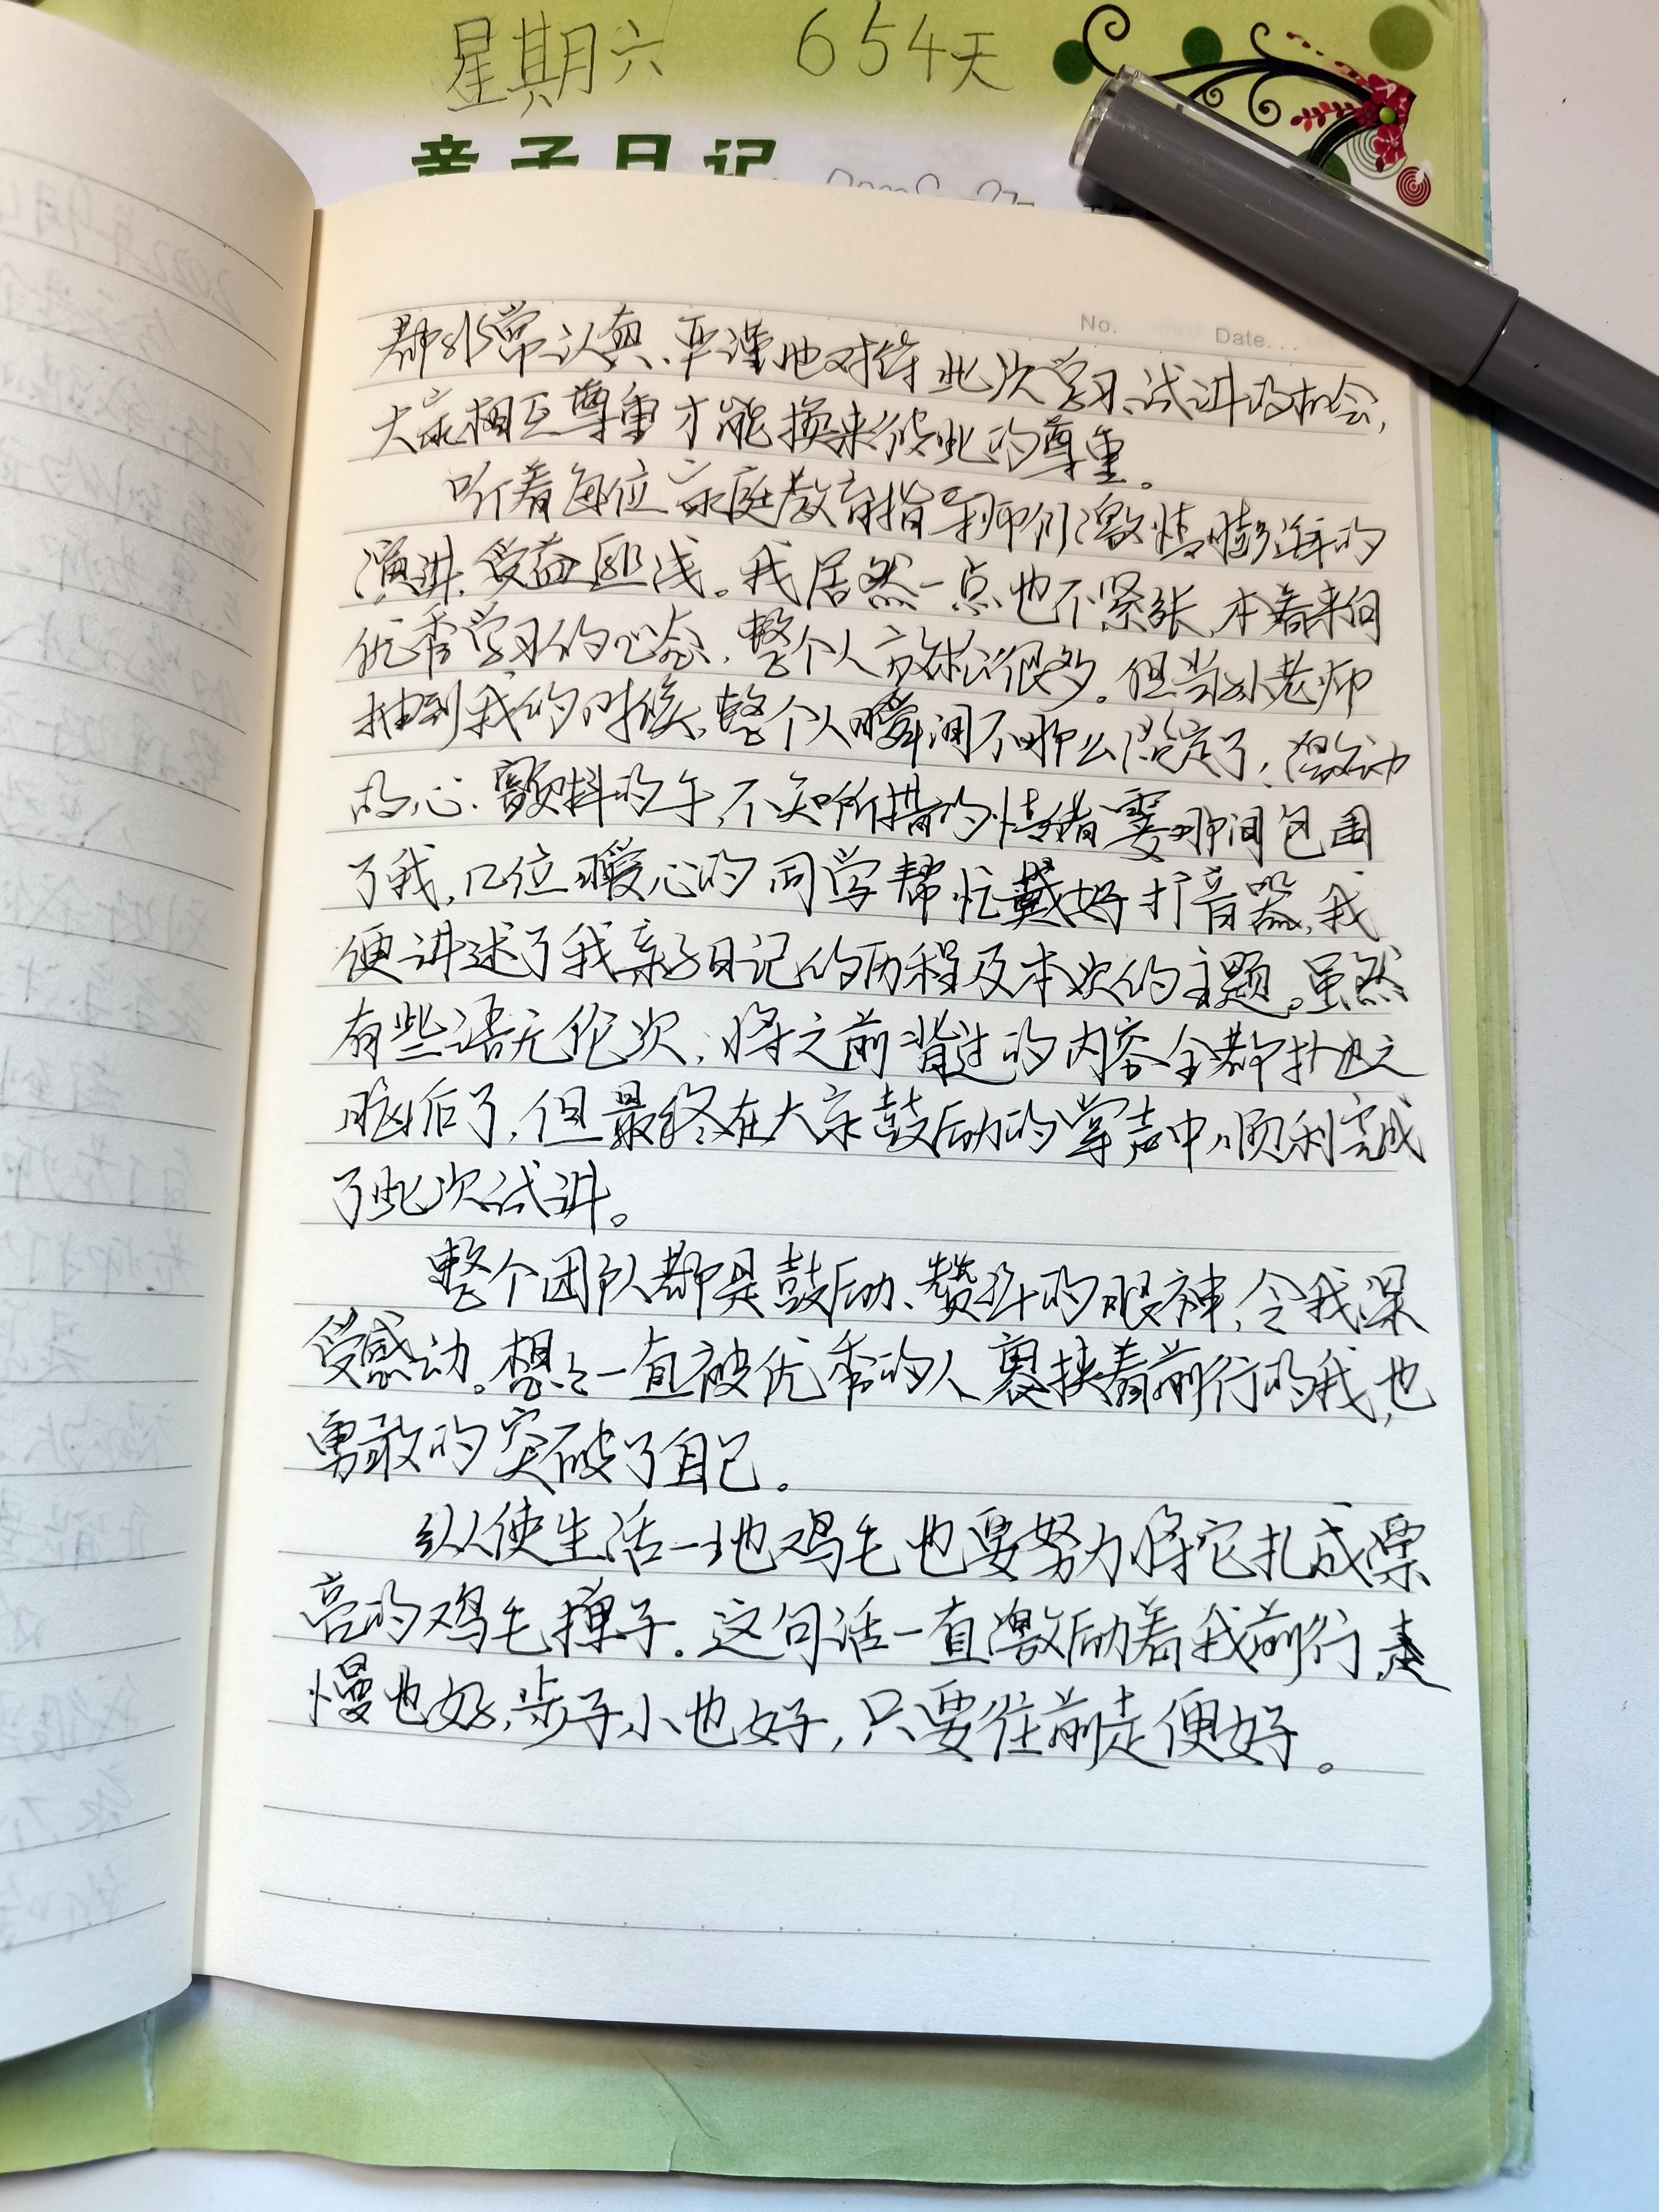 星期六 654天
亲子日记
No. Date.
都非常认真、严谨地对待此次学习、试讲的机会,
大家相互尊重才能换来彼此的尊重。
听着每位家庭教育指导师们激情膨湃的
演讲,受益匪浅。我居然一点也不紧张,本着来向
优秀学习的心态,整个人放松很多。但当孙老师
抽到我的时候,整个人瞬间不那么淡定了,激动
的心、颤抖的手,不知所措的情绪霎那间包围
了我,几位暖心的同学帮忙戴好扩音器,我
便讲述了我亲子日记的历程及本次的主题。虽然
有些语无伦次,将之前背过的内容全都抛之
脑后了,但最终在大家鼓励的掌声中,顺利完成
了此次试讲。
整个团队都是鼓励、赞许的眼神,令我深
受感动。想想一直被优秀的人裹挟着前行的我,也
勇敢的突破了自己。
纵使生活一地鸡毛也要努力将它扎成漂
亮的鸡毛掸子。这句话一直激励着我前行,走
慢也好,步子小也好,只要往前走便好。